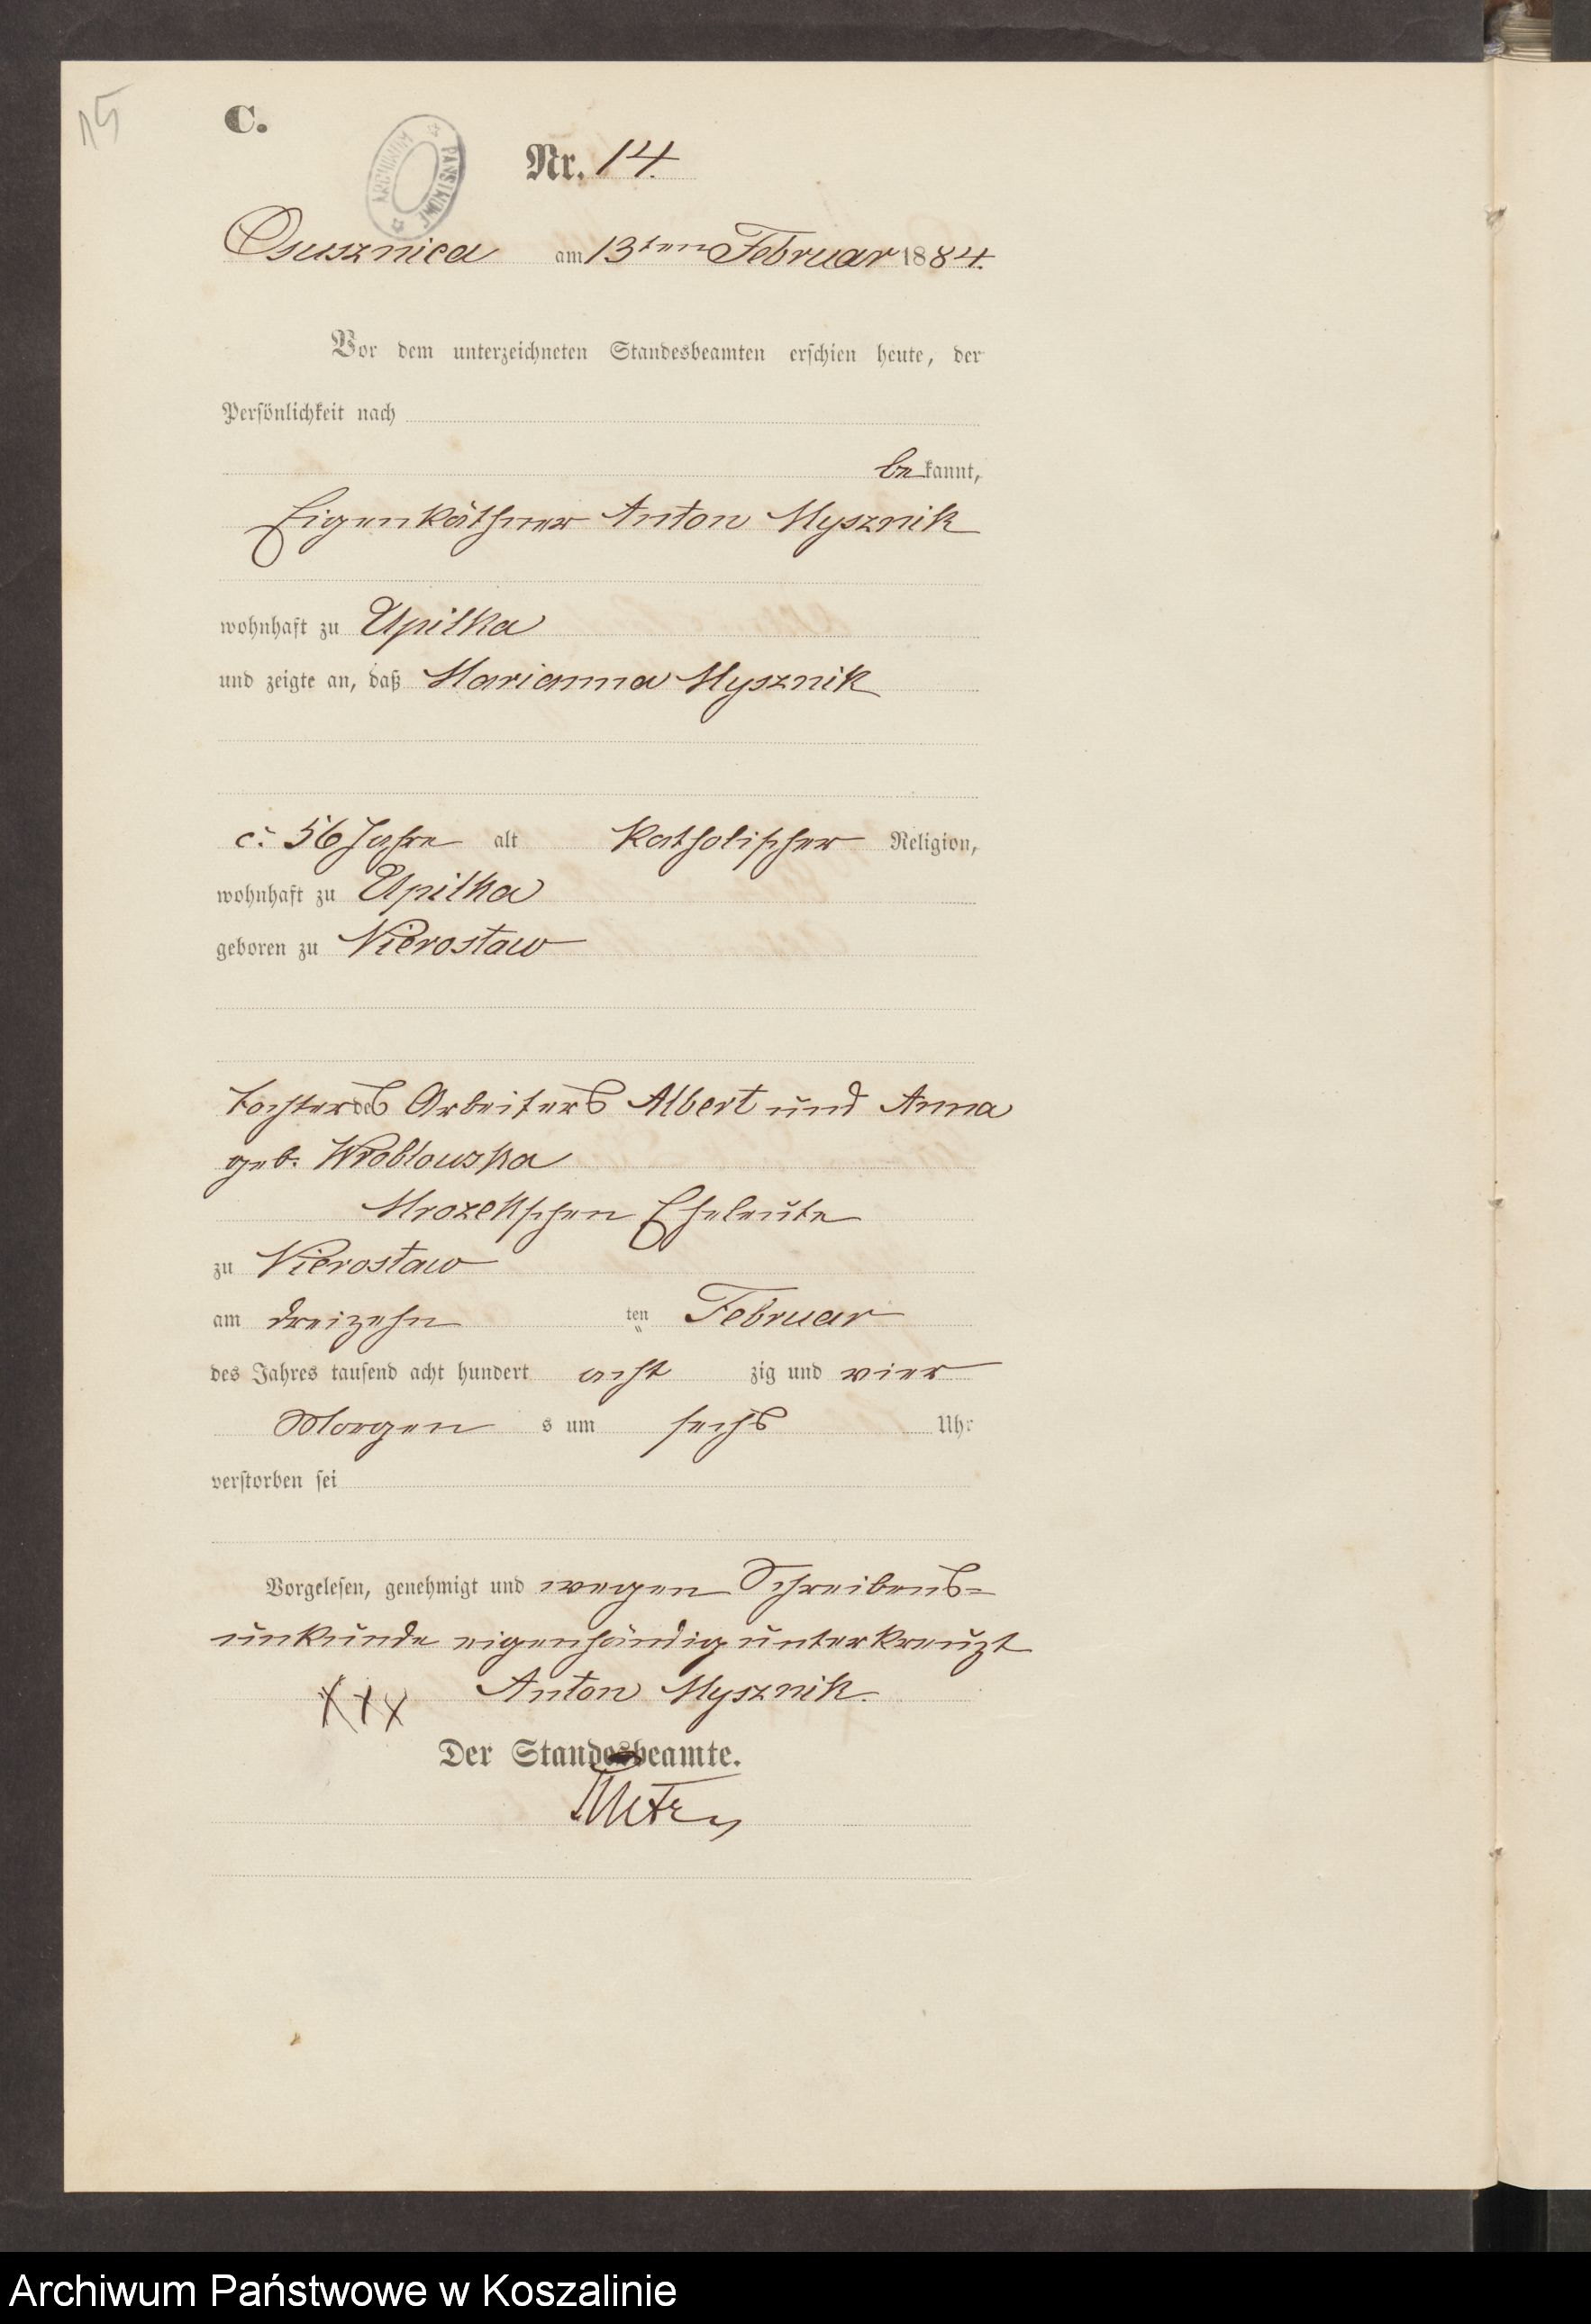 15
C.
ARCHIWUM PAŃSTWOWE
Nr. 14.
Osusznica am 13ten Februar 1884.
Vor dem unterzeichneten Standesbeamten erschien heute, der
Persönlichkeit nach
bekannt,
Eigenkäthner Anton Mysznik
wohnhaft zu Upilka
und zeigte an, daß Marianna Mysznik
c: 56 Jahre alt katholischer Religion,
wohnhaft zu Upilka
geboren zu Nierostaw
Tochter des Arbeiters Albert und Anna
geb. Wroblowska
Mrozekschen Eheleute
zu Nierostaw
am dreizehn ten Februar
des Jahres tausend acht hundert acht zig und vier
Morgen s um sechs Uhr
verstorben sei
Vorgelesen, genehmigt und wegen Schreibens=
unkunde eigenhändig unterkreuzt
XXX Anton Mysznik.
Der Standesbeamte.
Archiwum Państwowe w Koszalinie